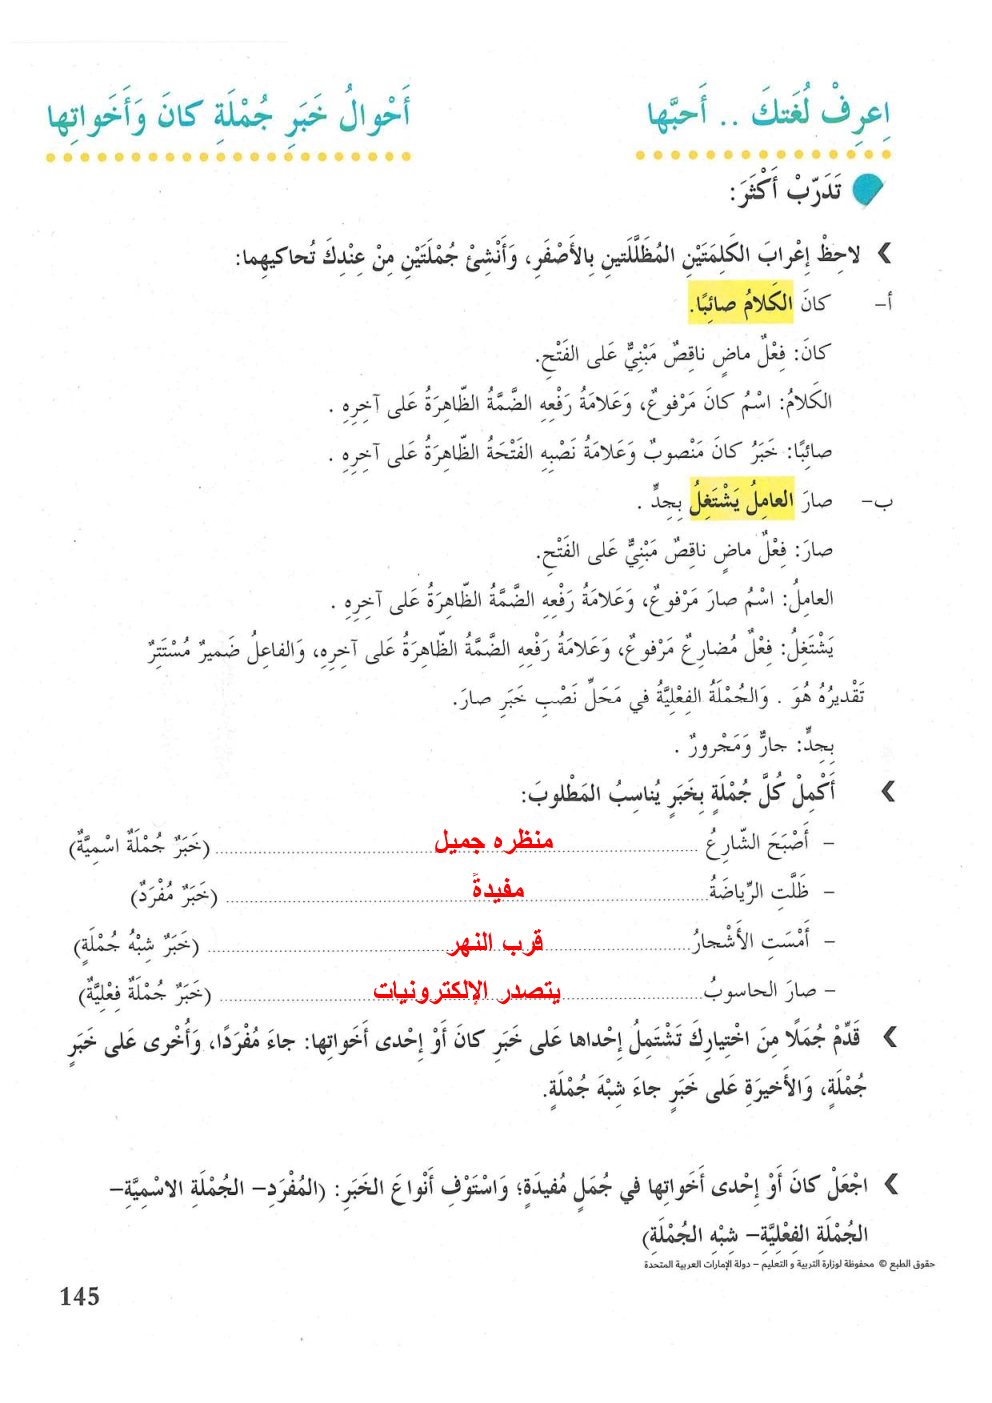 اِعرِفْ لُغَتكَ .. أَحبَّها
أَحْوالُ خَبَرِ جُمْلَةِ كانَ وَأَخَواتِها
تَدَرّبْ أَكْثَرَ:
لاحِظْ إِعْرابَ الكَلِمَتَيْنِ المُظَلَّلَتينِ بِالأَصْفَرِ، وَأَنْشِئْ جُمْلَتَيْنِ مِنْ عِنْدِكَ تُحاكيهِما:
أ- كانَ الكَلامُ صائِبًا.
كانَ: فِعْلٌ ماضٍ ناقِصٌ مَبْنِيٌّ عَلى الفَتْحِ.
الكَلامُ: اسْمُ كانَ مَرْفوعٌ، وَعَلامَةُ رَفْعِهِ الضَّمَّةُ الظّاهِرَةُ عَلى آخِرِهِ .
صائِبًا: خَبَرُ كانَ مَنْصوبٌ وَعَلامَةُ نَصْبِهِ الفَتْحَةُ الظّاهِرَةُ عَلى آخِرِهِ .
ب- صارَ العامِلُ يَشْتَغِلُ بِجِدٍّ .
صارَ: فِعْلٌ ماضٍ ناقِصٌ مَبْنِيٌّ عَلى الفَتْحِ.
العامِلُ: اسْمُ صارَ مَرْفوعٌ، وَعَلامَةُ رَفْعِهِ الضَّمَّةُ الظّاهِرَةُ عَلى آخِرِهِ .
يَشْتَغِلُ: فِعْلٌ مُضارِعٌ مَرْفوعٌ، وَعَلامَةُ رَفْعِهِ الضَّمَّةُ الظّاهِرَةُ عَلى آخِرِهِ، وَالفاعِلُ ضَميرٌ مُسْتَتِرٌ
تَقْديرُهُ هُوَ . وَالجُمْلَةُ الفِعْلِيَّةُ في مَحَلِّ نَصْبِ خَبَرِ صارَ.
بِجِدٍّ: جارٌّ وَمَجْرورٌ .
أَكْمِلْ كُلَّ جُمْلَةٍ بِخَبَرٍ يُناسِبُ المَطْلوبَ:
- أَصْبَحَ الشّارِعُ منظره جميل (خَبَرٌ جُمْلَةٌ اسْمِيَّةٌ)
- ظَلَّتِ الرِّياضَةُ مفيدةً (خَبَرٌ مُفْرَدٌ)
- أَمْسَتِ الأَشْجارُ قرب النهر (خَبَرٌ شِبْهُ جُمْلَةٍ)
- صارَ الحاسوبُ يتصدر الإلكترونيات (خَبَرٌ جُمْلَةٌ فِعْلِيَّةٌ)
قَدِّمْ جُمَلًا مِنَ اخْتِيارِكَ تَشْتَمِلُ إِحْداها عَلى خَبَرِ كانَ أَوْ إِحْدى أَخَواتِها: جاءَ مُفْرَدًا، وَأُخْرى عَلى خَبَرٍ
جُمْلَةٍ، وَالأَخيرَةِ عَلى خَبَرٍ جاءَ شِبْهَ جُمْلَةٍ.
اجْعَلْ كانَ أَوْ إِحْدى أَخَواتِها في جُمَلٍ مُفيدَةٍ؛ وَاسْتَوْفِ أَنْواعَ الخَبَرِ: (المُفْرَدِ- الجُمْلَةِ الاسْمِيَّةِ-
الجُمْلَةِ الفِعْلِيَّةِ- شِبْهِ الجُمْلَةِ)
حقوق الطبع © محفوظة لوزارة التربية و التعليم – دولة الإمارات العربية المتحدة
145